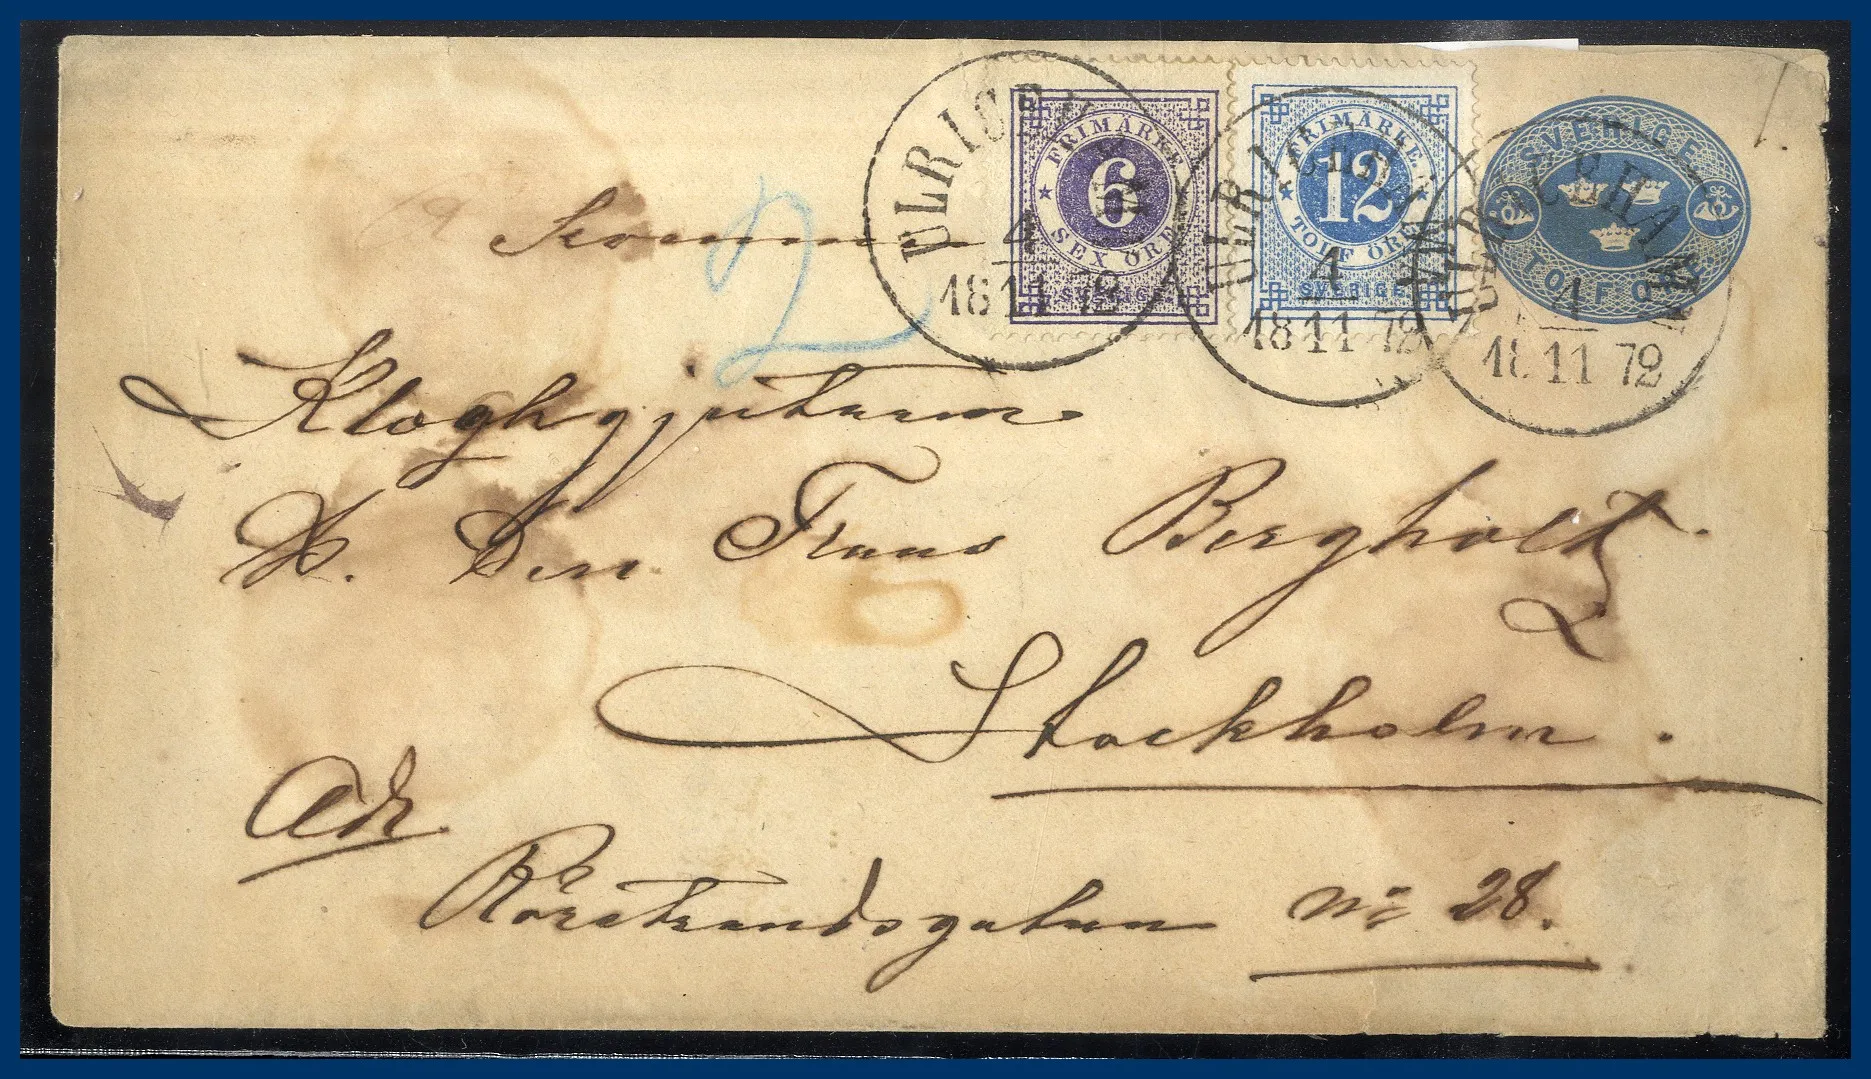 FRIMÄRKE
6
SEX ÖRE
SVERIGE
FRIMÄRKE
12
TOLF ÖRE
SVERIGE
SVERIGE
TOLF ÖRE
ULRICEHAMN
4
18 11 72
ULRICEHAMN
4
18 11 72
ULRICEHAMN
4
18 11 72
2
Klockgjutaren
Frans Bergholtz
Stockholm.
Adr
Rörstrandsgatan No 28.